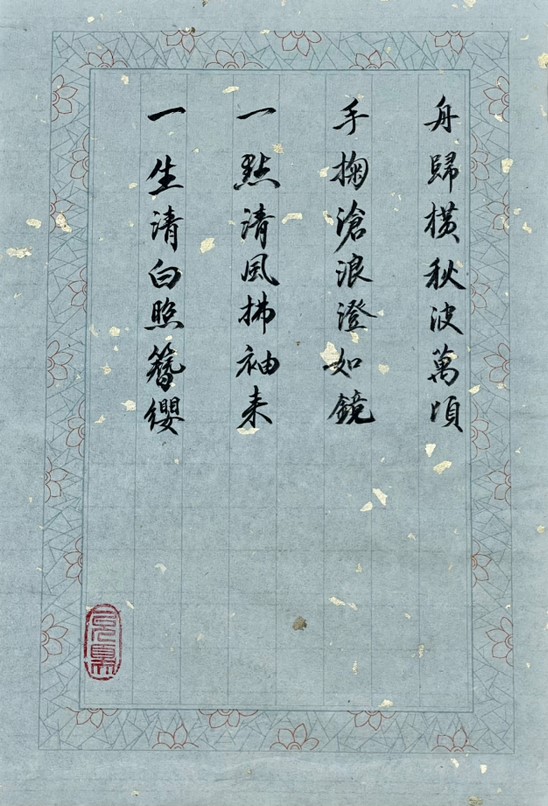 舟歸橫秋波萬頃
手掬滄浪澄如鏡
一點清風拂袖来
一生清白照簪纓